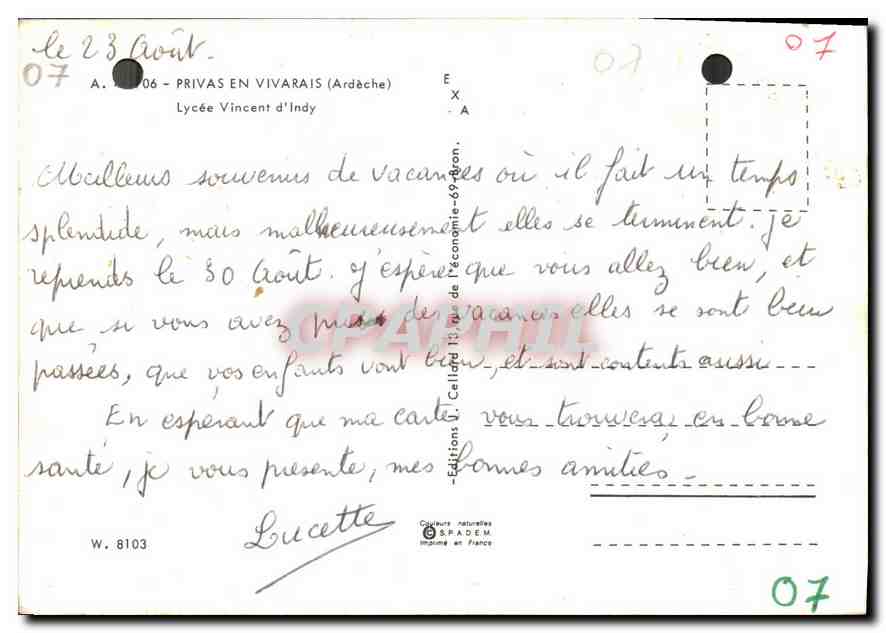 le 23 Août.
07
07
07
A. 06 - PRIVAS EN VIVARAIS (Ardèche)
Lycée Vincent d'Indy
E
X
A
Meilleurs souvenirs de vacances où il fait un temps
splendide, mais malheureusement elles se terminent. Je
reprends le 30 Août. J'espère que vous allez bien, et
que si vous avez pris des vacances elles se sont bien
passées, que vos enfants vont bien, et sont contents aussi
En espérant que ma carte vous trouvera en bonne
santé, je vous présente, mes bonnes amitiés.
Lucette
CPAPHIL
-Editions J. Cellard 13, rue de l'économie-69-Bron.
W. 8103
Couleurs naturelles
© S.P.A.D.E.M.
Imprimé en France
07